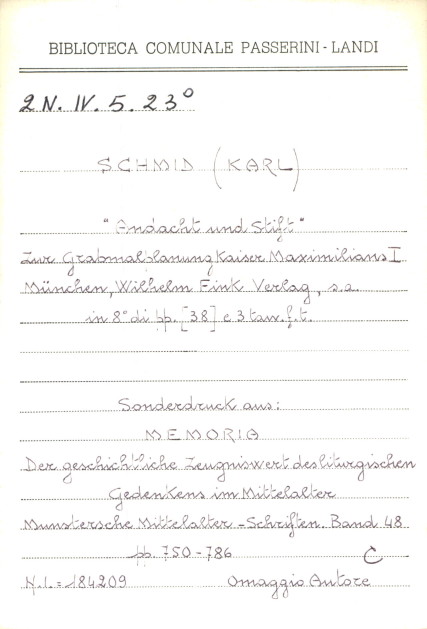 BIBLIOTECA COMUNALE PASSERINI-LANDI
2N. IV. 5. 23º
SCHMID (KARL)
"Andacht und Stift"
Zur Grabmalplanung Kaiser Maximilians I
München, Wilhelm Fink Verlag, s.a.
in 8º di pp. [38] e 3 tav. f.t.
Sonderdruck aus:
MEMORIA
Der geschichtliche Zeugniswert des liturgischen
Gedenkens im Mittelalter
Munstersche Mittelalter-Schriften. Band 48
pp. 750-786
C
N.I.=184209 Omaggio Autore